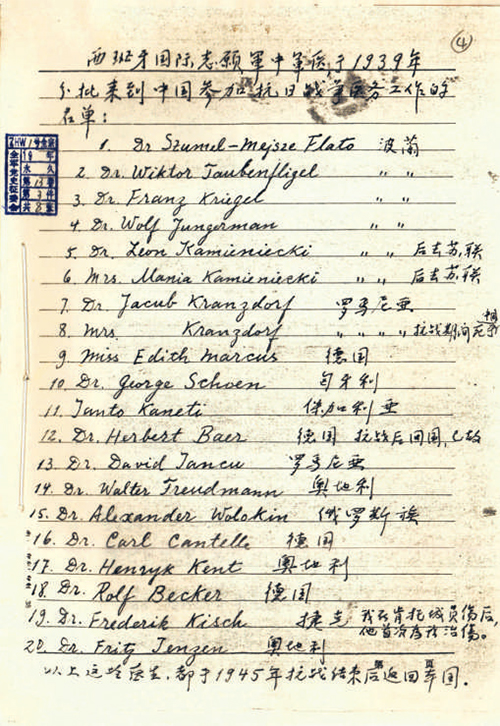 ④
西班牙国际志愿军中军医于1939年
分批来到中国参加抗日战争医务工作的
名单:
1. Dr Szumel-Mejsze Flato 波蘭
2. Dr. Wiktor Taubenfligel 〃 〃
3. Dr. Franz Kriegel 〃 〃
4. Dr. Wolf Jungerman 〃 〃
5. Dr. Leon Kamieniecki 〃 〃 后去苏联
6. Mrs. Mania Kamieniecki 〃 〃 后去苏联
7. Dr. Jacub Kranzdorf 罗马尼亚
8. Mrs. Kranzdorf 〃 〃 〃 〃 抗战期间死于
9. Miss Edith Marcus 德国
10. Dr. George Schoen 匈牙利
11. Ianto Kaneti 保加利亚
12. Dr. Herbert Baer 德国 抗战后回国,已故
13. Dr. David Iancu 罗马尼亚
14. Dr. Walter Freudmann 奥地利
15. Dr. Alexander Wolokin 俄罗斯族
16. Dr. Carl Cantelle 德国
17. Dr. Henryk Kent 奥地利
18. Dr. Rolf Becker 德国
19. Dr. Frederik Kisch 捷克 我在肯托城负伤后,
他首次为我治傷。
20. Dr. Fritz Jenzen 奥地利
以上这些医生,都于1945年抗战结束后返回国。
ZHW
19 年
永久
第 19 卷
第 3 件
共 8 张